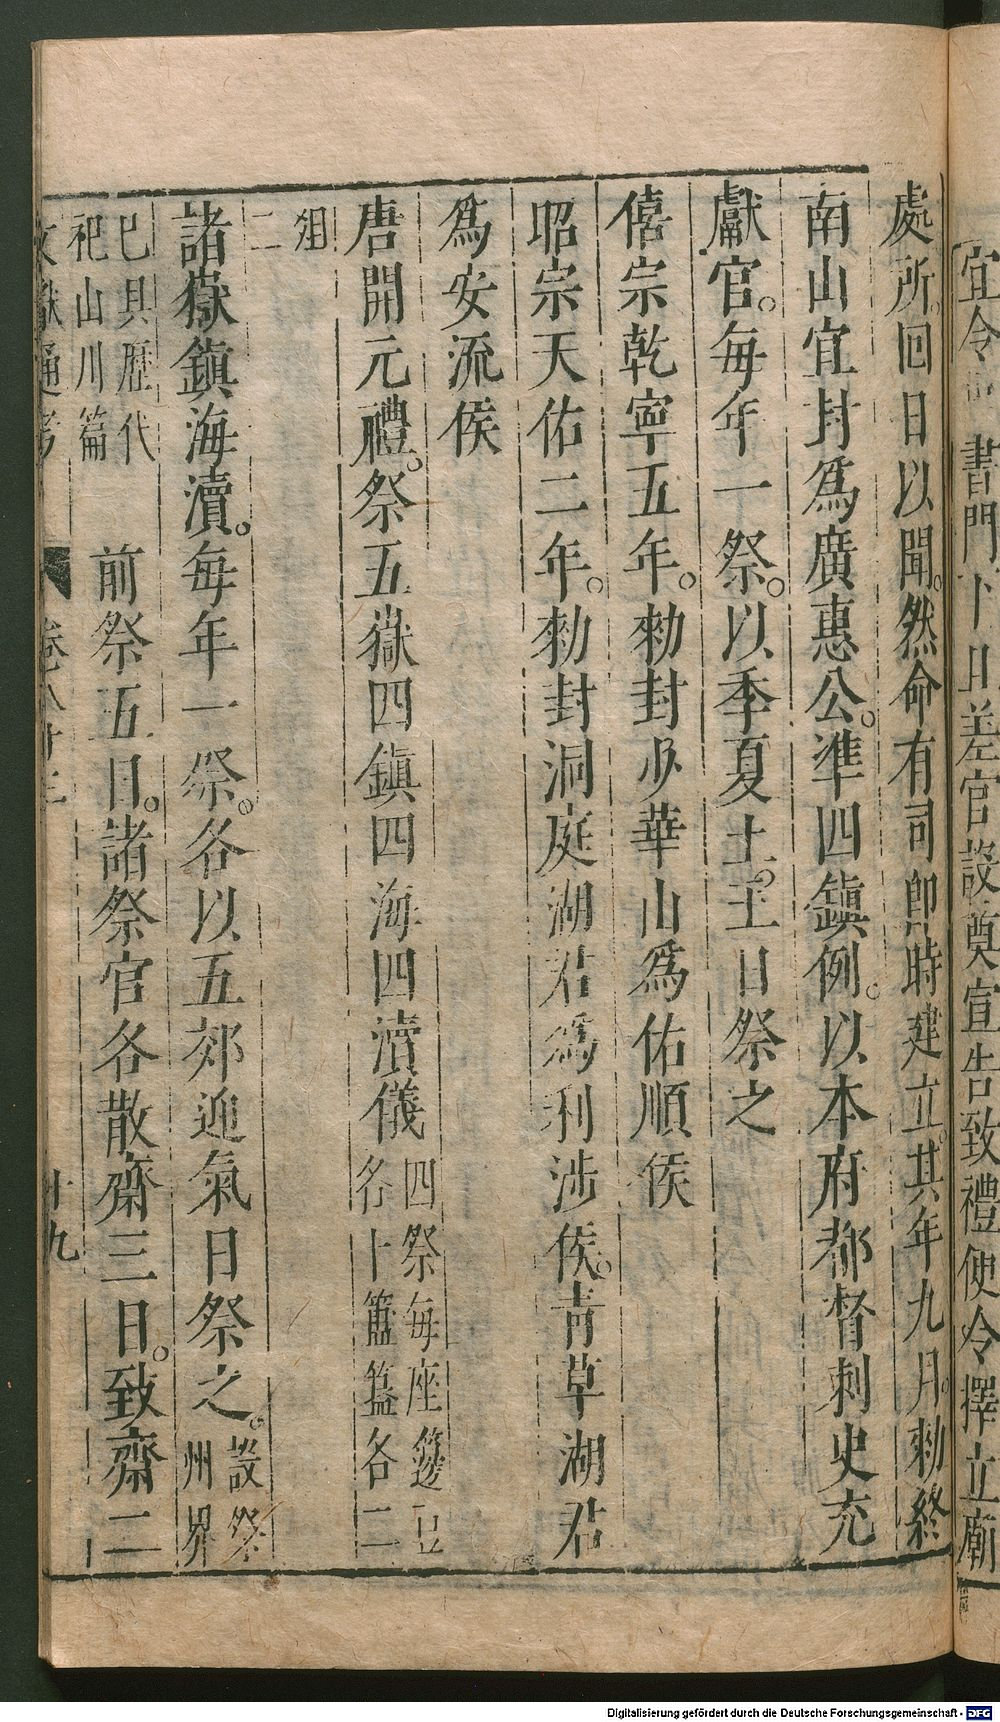 宜令 書門下 差官設奠宣告致禮便令擇立廟
處所回日以聞然命有司卽時建立其年九月勑終
南山宜封爲廣惠公準四鎭例以本府都督刺史充
獻官每年一祭以季夏土王日祭之
僖宗乾寧五年勑封少華山爲佑順侯
昭宗天佑二年勑封洞庭湖君爲利涉侯靑草湖君
爲安流侯
唐開元禮祭五嶽四鎭四海四瀆儀四祭每座籩豆
各十簠簋各二
俎
二
諸嶽鎭海瀆每年一祭各以五郊迎氣日祭之設祭
州界
巳具歷代
祀山川篇
前祭五日諸祭官各散齋三日致齋二
文獻通考 卷八十三 十九
Digitalisierung gefördert durch die Deutsche Forschungsgemeinschaft - DFG